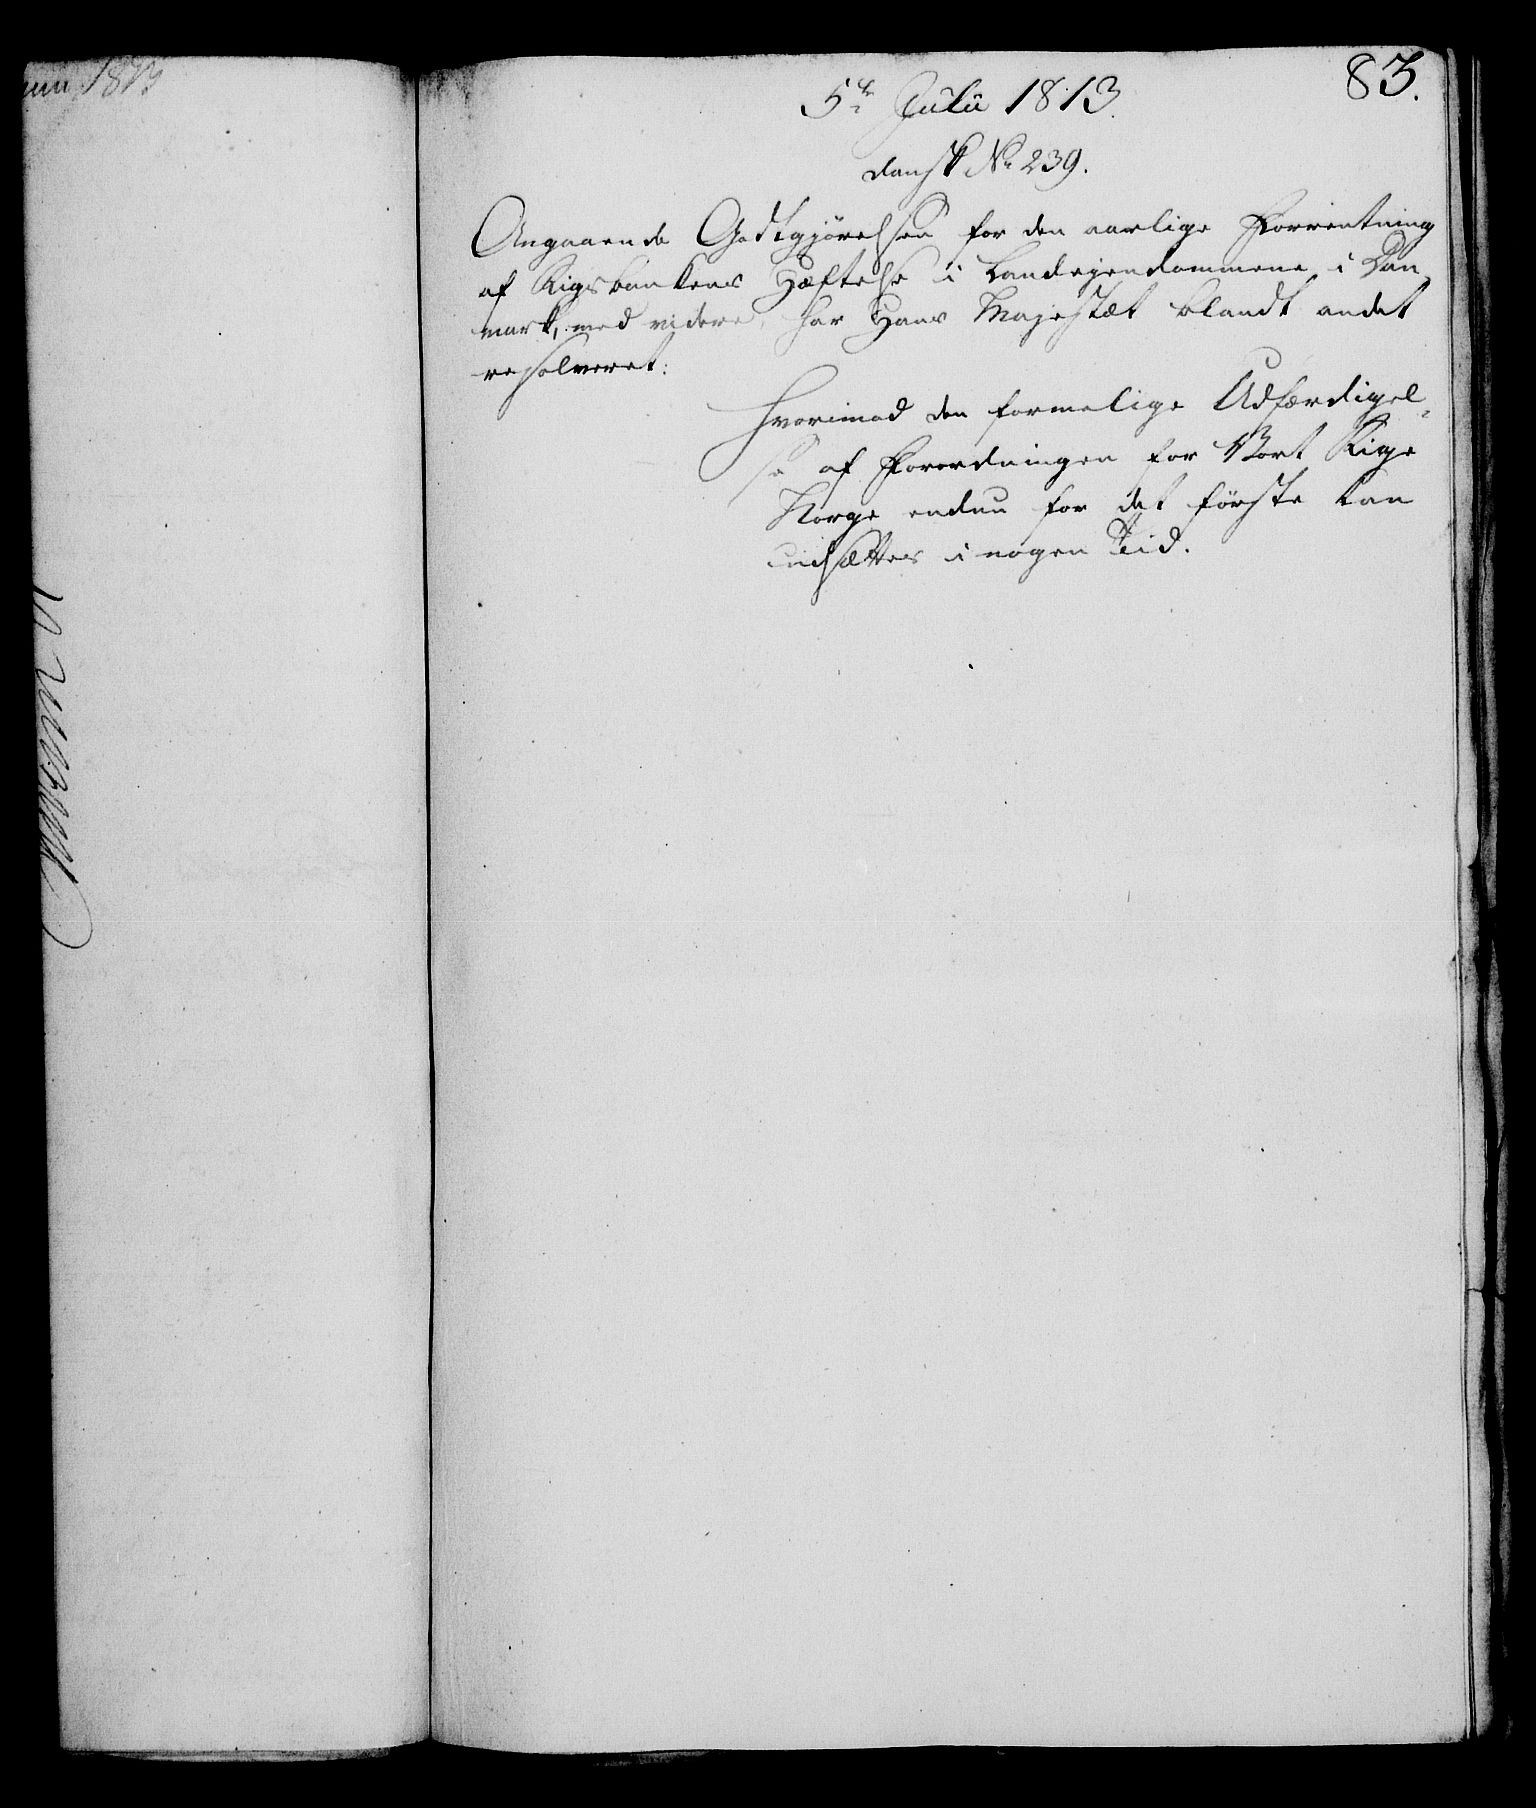 83.
5te Julii 1813.
dansk No 239.
Angaaende Godtgjörelsen for den aarlige Forrentning
af Rigsbankens Hæftelse i Landejendommene i Dan¬
mark, med videre, har Hans Majestæt blandt andet
resolveret:
Hvorimod den formelige Udfærdigel¬
se af Forordningen for Vort Rige
Norge endnu for det förste kan
udsættes i nogen Tid.